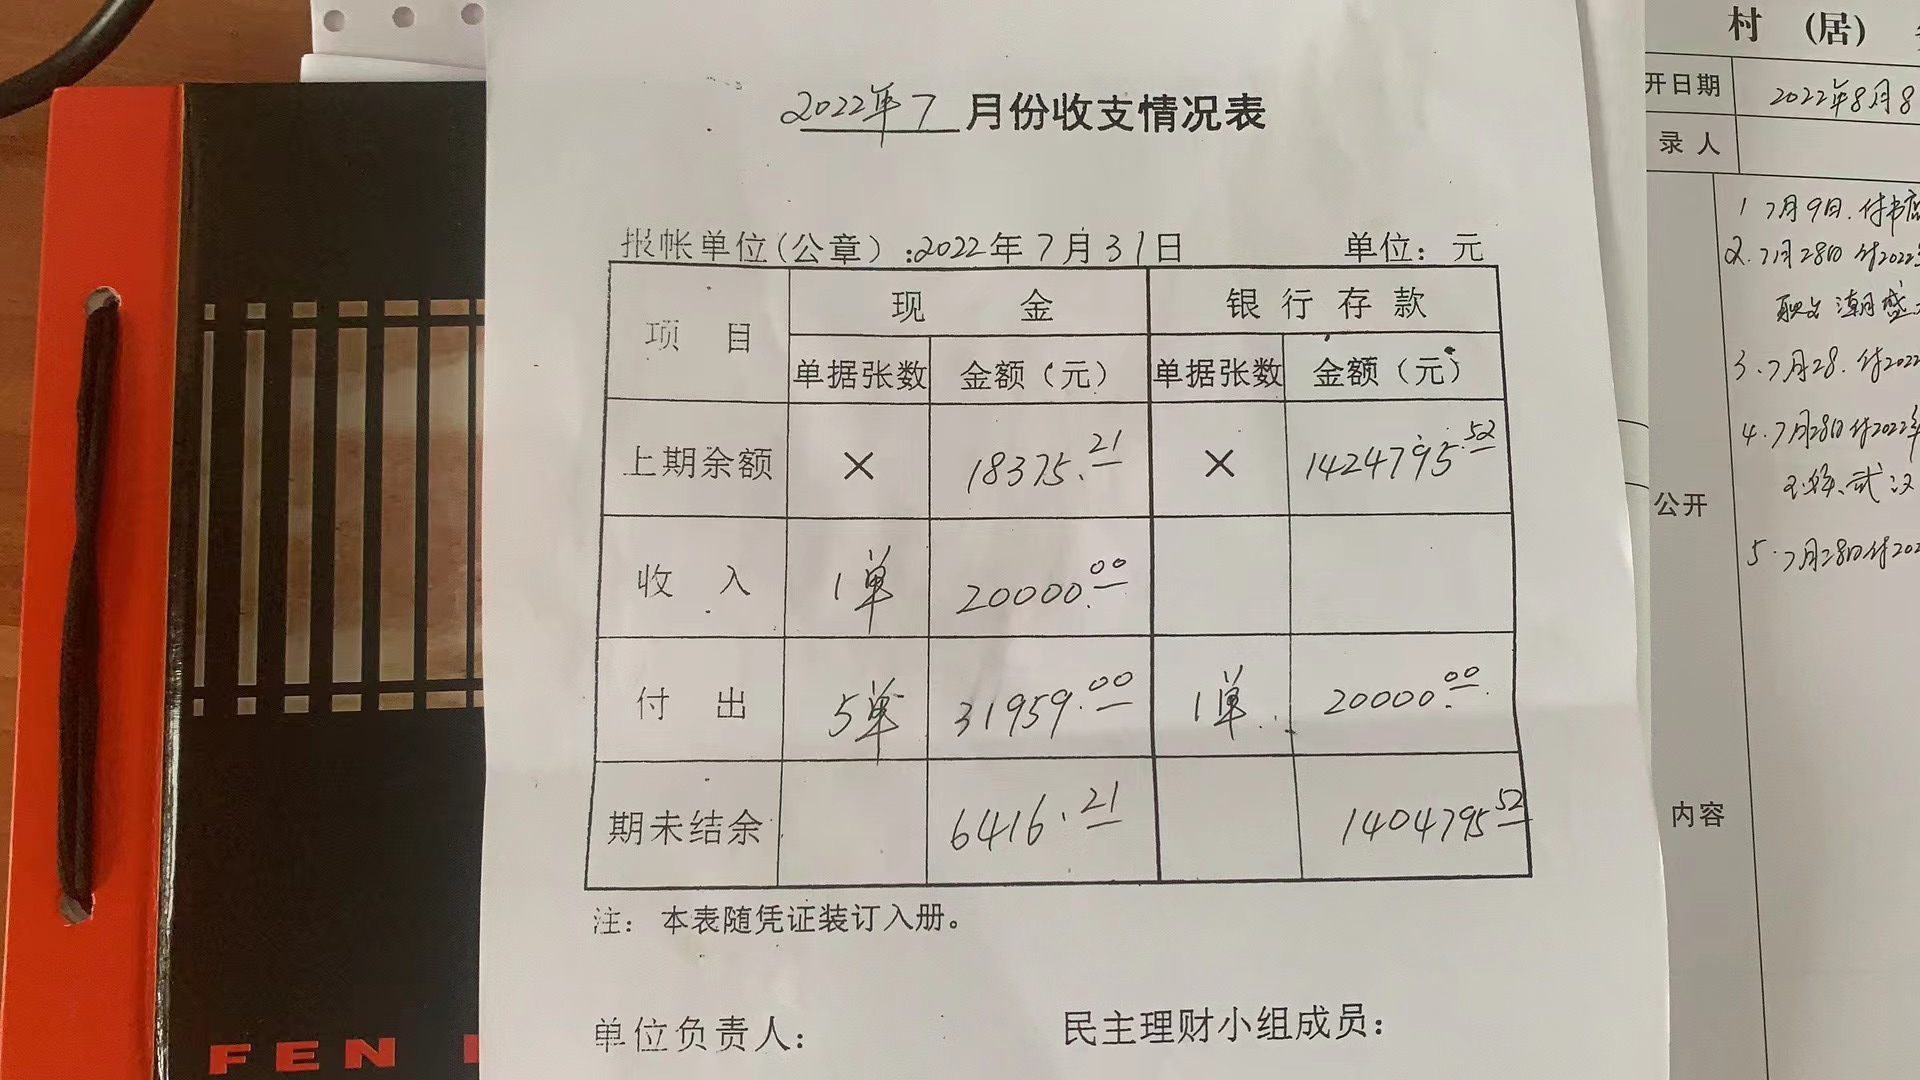 2022年7月份收支情况表
报帐单位(公章):2022年7月31日 单位：元
项目 现金 银行存款
单据张数 金额（元） 单据张数 金额（元）
上期余额 × 18375.21 × 1424795.52
收入 1单 20000.00
付出 5单 31959.00 1单 20000.00
期末结余 6416.21 1404795.52
注：本表随凭证装订入册。
单位负责人： 民主理财小组成员：
FEN
村（居）
开日期 2022年8月8
录人
1 7月9日.付书店
2.7月28日付2022
3.7月28.付2022
4.7月28日付2022年
5.7月28日付202
公开
内容